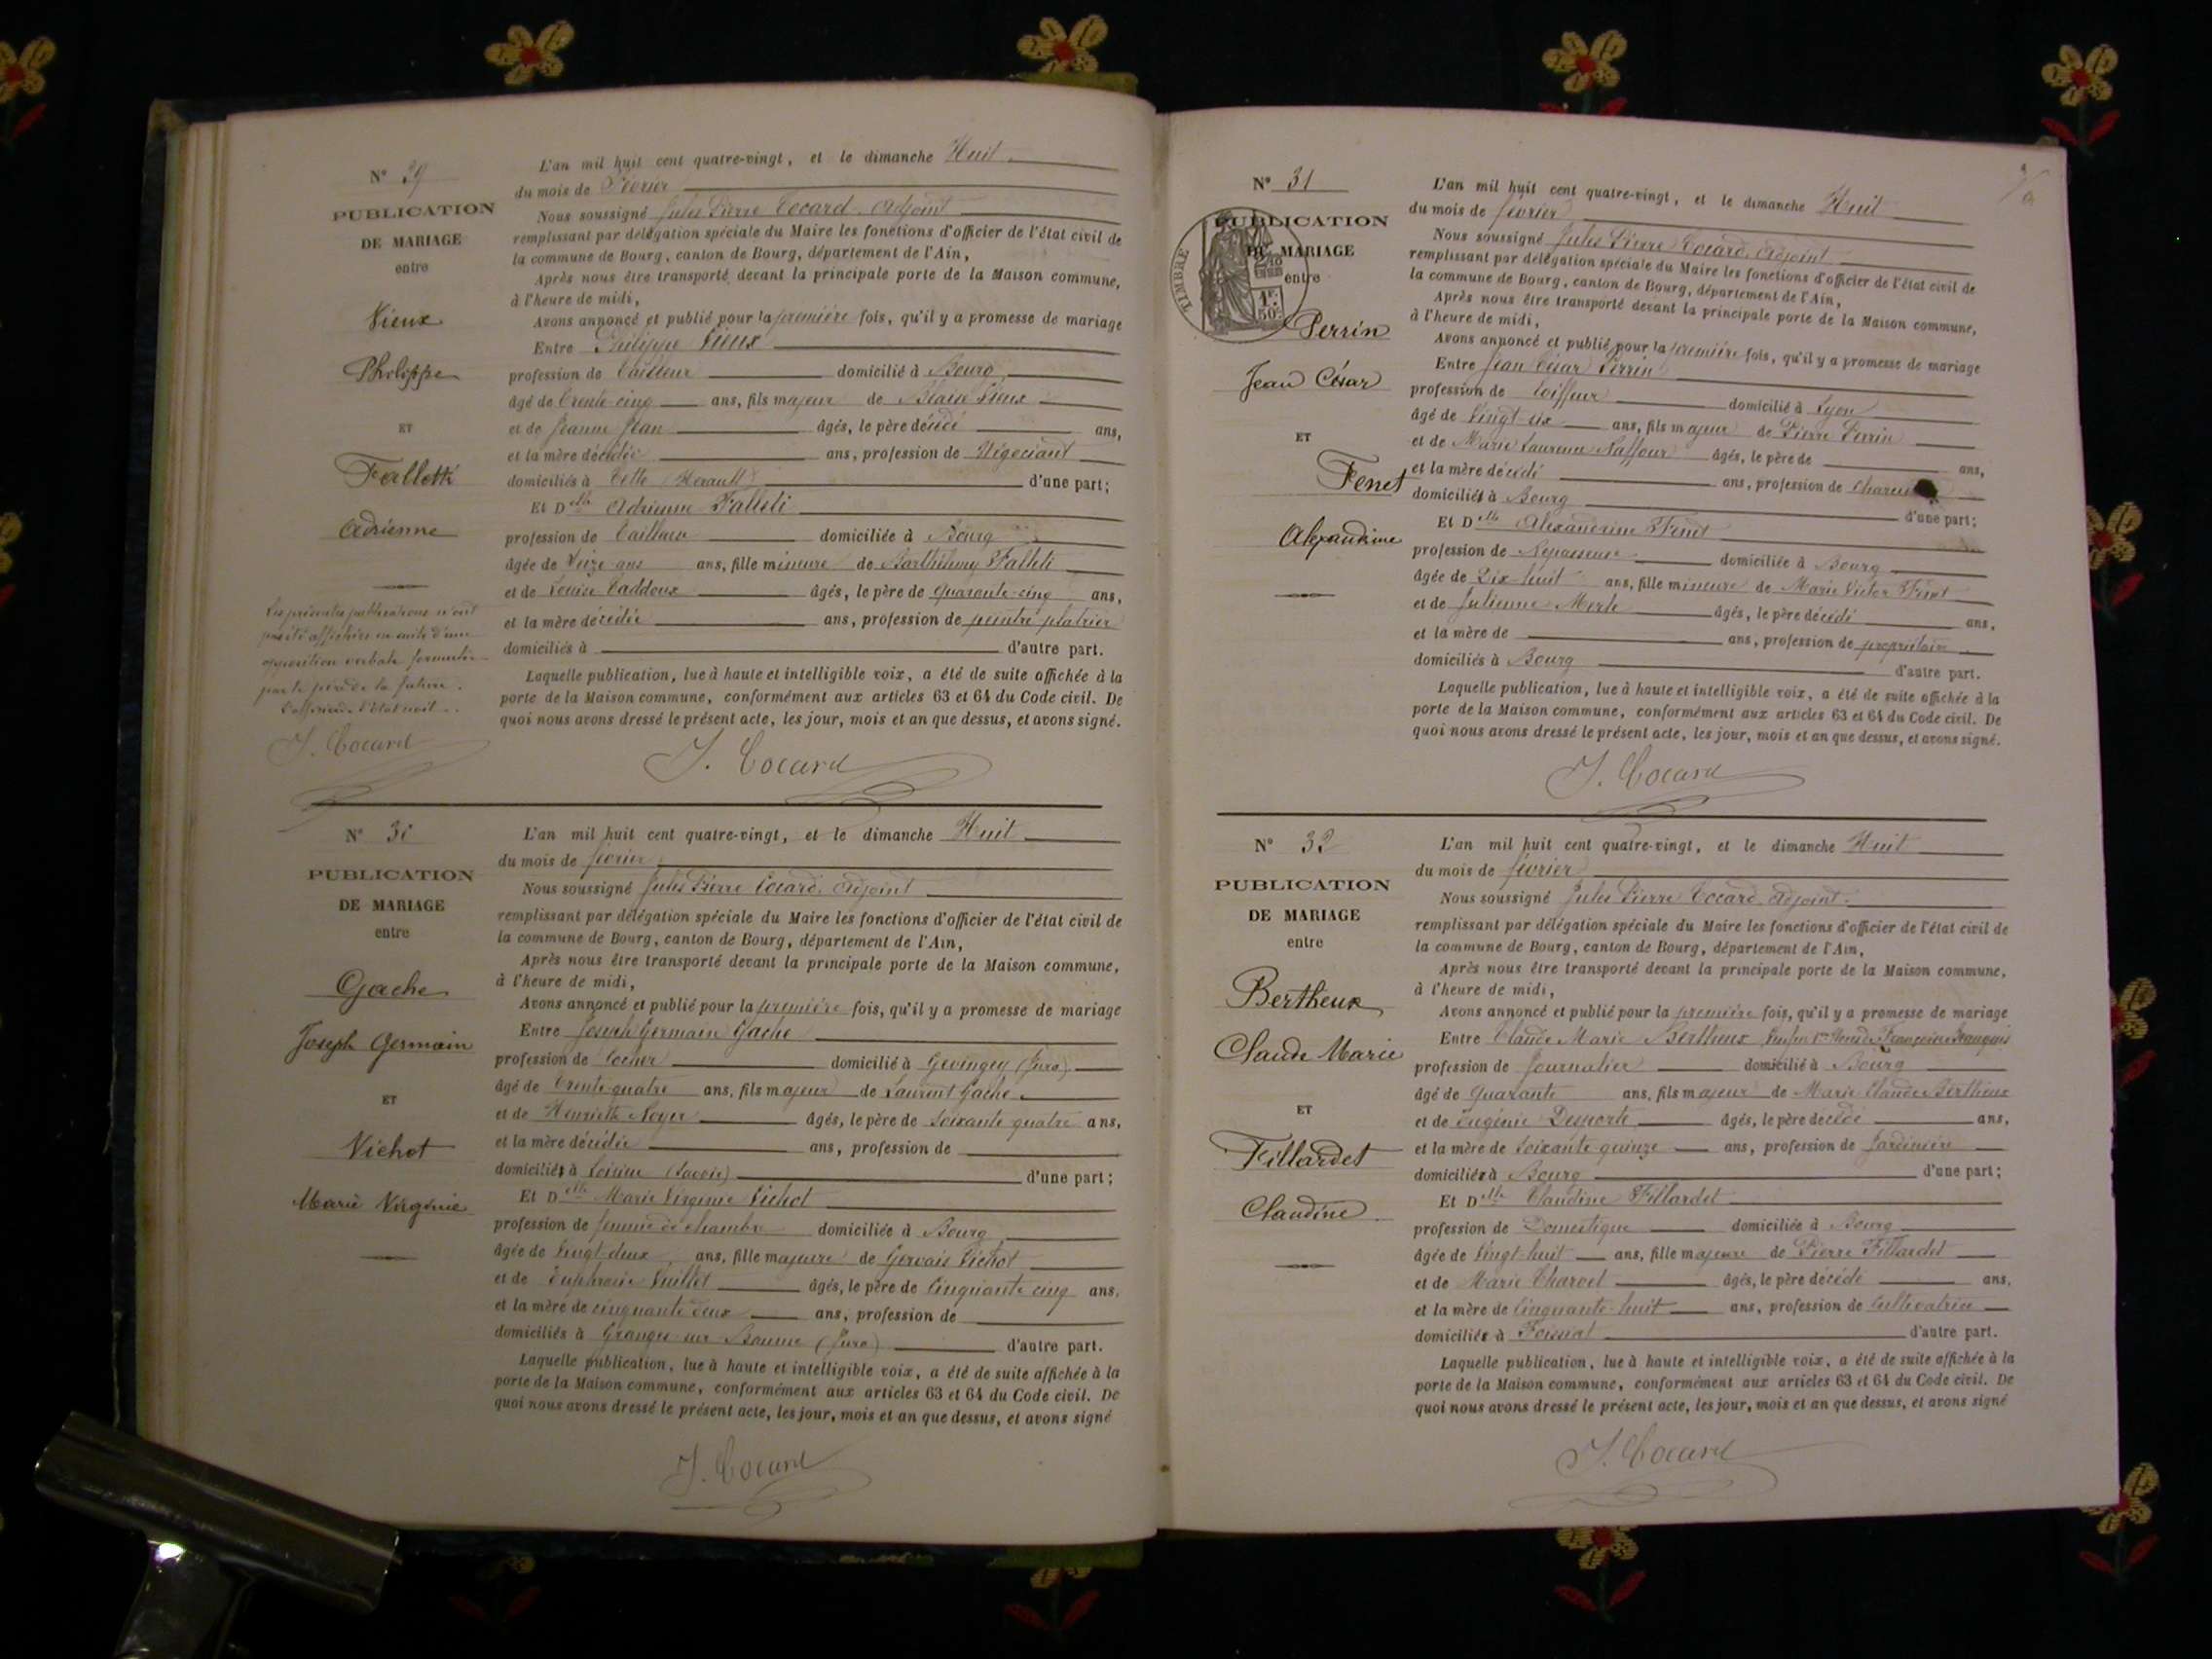 N° 29
PUBLICATION
DE MARIAGE
entre
Vieux
Philippe
ET
Falletti
Adrienne
Les présentes publications n'ont
pas été affichées en suite d'une
opposition verbale formulée
par le père de la future.
L'officier de l'état civil
J. Cocard
L'an mil huit cent quatre-vingt, et le dimanche Huit
du mois de Février
Nous soussigné Jules Pierre Cocard, Adjoint
remplissant par délégation spéciale du Maire les fonctions d'officier de l'état civil de
la commune de Bourg, canton de Bourg, département de l'Ain,
Après nous être transporté devant la principale porte de la Maison commune,
à l'heure de midi,
Avons annoncé et publié pour la première fois, qu'il y a promesse de mariage
Entre Philippe Vieux
profession de Tailleur domicilié à Bourg
âgé de Trente-cinq ans, fils majeur de Blaise Vieux
et de Jeanne Jean âgés, le père décédé ans,
et la mère décédée ans, profession de Négociant
domiciliés à Cette (Hérault) d'une part;
Et Delle Adrienne Falletti
profession de Tailleuse domiciliée à Bourg
âgée de Seize ans ans, fille mineure de Barthélemy Falletti
et de Louise Taddeux âgés, le père de quarante-cinq ans,
et la mère décédée ans, profession de peintre plâtrier
domiciliés à d'autre part.
Laquelle publication, lue à haute et intelligible voix, a été de suite affichée à la
porte de la Maison commune, conformément aux articles 63 et 64 du Code civil. De
quoi nous avons dressé le présent acte, les jour, mois et an que dessus, et avons signé.
J. Cocard
N° 30
PUBLICATION
DE MARIAGE
entre
Gache
Joseph Germain
ET
Vichot
Marie Virginie
L'an mil huit cent quatre-vingt, et le dimanche Huit
du mois de février
Nous soussigné Jules Pierre Cocard, Adjoint
remplissant par délégation spéciale du Maire les fonctions d'officier de l'état civil de
la commune de Bourg, canton de Bourg, département de l'Ain,
Après nous être transporté devant la principale porte de la Maison commune,
à l'heure de midi,
Avons annoncé et publié pour la première fois, qu'il y a promesse de mariage
Entre Joseph Germain Gache
profession de Cocher domicilié à Gevingey (Jura)
âgé de Trente-quatre ans, fils majeur de Laurent Gache
et de Henriette Noyer âgés, le père de soixante quatre ans,
et la mère décédée ans, profession de
domiciliés à (Savoie) d'une part;
Et Delle Marie Virginie Vichot
profession de femme de chambre domiciliée à Bourg
âgée de Vingt-deux ans, fille majeure de Gervais Vichot
et de Euphrasie Vuillet âgés, le père de Cinquante cinq ans.
et la mère de cinquante deux ans, profession de
domiciliés à Granges sur Baume (Jura) d'autre part.
Laquelle publication, lue à haute et intelligible voix, a été de suite affichée à la
porte de la Maison commune, conformément aux articles 63 et 64 du Code civil. De
quoi nous avons dressé le présent acte, les jour, mois et an que dessus, et avons signé
J. Cocard
N° 31
PUBLICATION
DE MARIAGE
entre
TIMBRE
1F.
50c.
Perrin
Jean César
ET
Fenet
Alexandrine
L'an mil huit cent quatre-vingt, et le dimanche Huit
du mois de février
Nous soussigné Jules Pierre Cocard, Adjoint
remplissant par délégation spéciale du Maire les fonctions d'officier de l'état civil de
la commune de Bourg, canton de Bourg, département de l'Ain,
Après nous être transporté devant la principale porte de la Maison commune,
à l'heure de midi,
Avons annoncé et publié pour la première fois, qu'il y a promesse de mariage
Entre Jean César Perrin
profession de Coiffeur domicilié à Lyon
âgé de Vingt-six ans, fils majeur de Pierre Perrin
et de Marie Laurence âgés, le père de ans,
et la mère décédé ans, profession de
domiciliés à Bourg d'une part;
Et Delle Alexandrine Fenet
profession de Repasseuse domiciliée à Bourg
âgée de Dix-huit ans, fille mineure de Marie Victor Fenet
et de Julienne Merle âgés, le père décédé ans,
et la mère de ans, profession de propriétaire
domiciliés à Bourg d'autre part.
Laquelle publication, lue à haute et intelligible voix, a été de suite affichée à la
porte de la Maison commune, conformément aux articles 63 et 64 du Code civil. De
quoi nous avons dressé le présent acte, les jour, mois et an que dessus, et avons signé.
J. Cocard
N° 32
PUBLICATION
DE MARIAGE
entre
Bertheux
Claude Marie
ET
Fillardet
Claudine
L'an mil huit cent quatre-vingt, et le dimanche Huit
du mois de février
Nous soussigné Jules Pierre Cocard, Adjoint
remplissant par délégation spéciale du Maire les fonctions d'officier de l'état civil de
la commune de Bourg, canton de Bourg, département de l'Ain,
Après nous être transporté devant la principale porte de la Maison commune,
à l'heure de midi,
Avons annoncé et publié pour la première fois, qu'il y a promesse de mariage
Entre Claude Marie Bertheux Françoise Françoise
profession de Journalier domicilié à Bourg
âgé de Quarante ans, fils majeur de Marie Claude Bertheux
et de Eugénie Desporte âgés, le père décédé ans,
et la mère de soixante quinze ans, profession de Jardinière
domiciliés à Bourg d'une part;
Et Delle Claudine Fillardet
profession de Domestique domiciliée à Bourg
âgée de Vingt-huit ans, fille majeure de Pierre Fillardet
et de Marie Charvet âgés, le père décédé ans,
et la mère de Cinquante-huit ans, profession de Cultivatrice
domiciliés à Foissiat d'autre part.
Laquelle publication, lue à haute et intelligible voix, a été de suite affichée à la
porte de la Maison commune, conformément aux articles 63 et 64 du Code civil. De
quoi nous avons dressé le présent acte, les jour, mois et an que dessus, et avons signé
J. Cocard